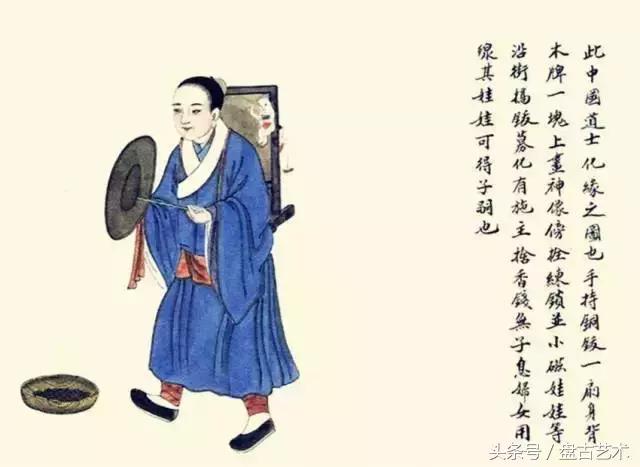 此中國道士化緣之圖也手持銅鈸一扇身背
木牌一塊上畫神像傍拴練鎖並小磁娃娃等
沿街擊鈸募化有施主捨香錢無子息婦女用
線其娃娃可得子嗣也
头条号／盘古艺术